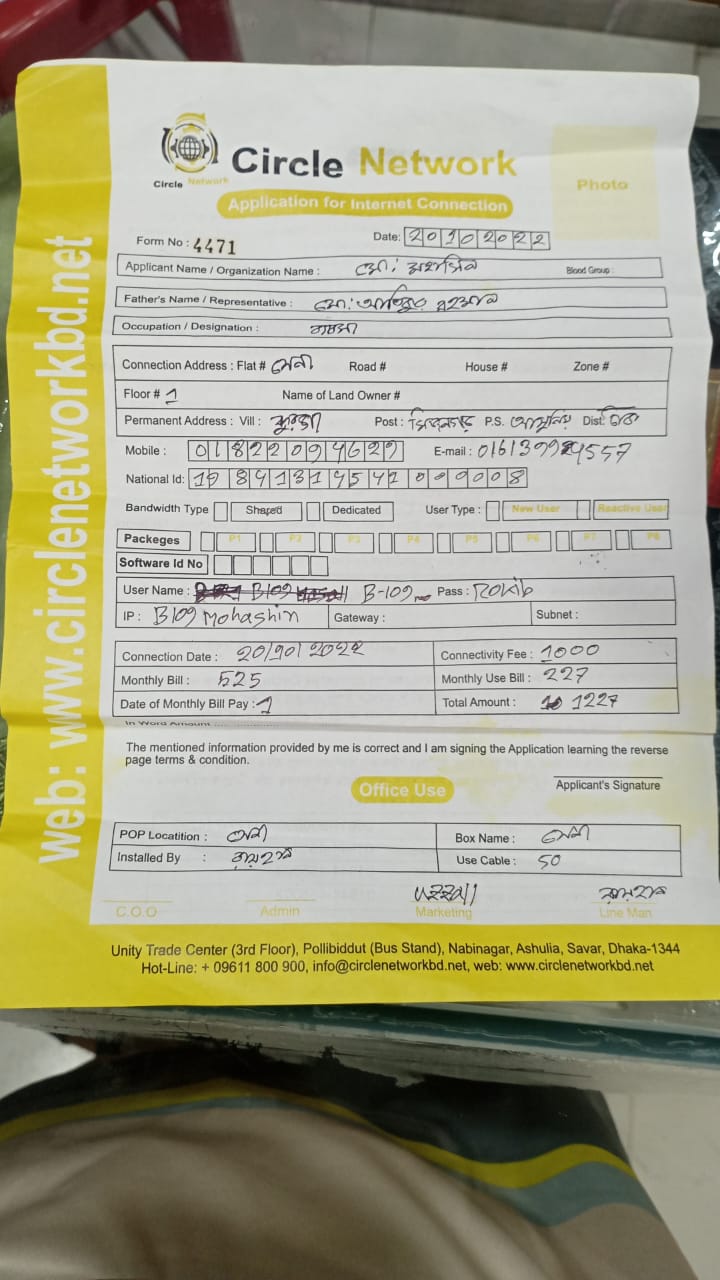 web: www.circlenetworkbd.net
Circle Network
Circle Network
Photo
Application for Internet Connection
Form No : 4471 Date: 20102022
Applicant Name / Organization Name : মো: মহাসিন Blood Group :
Father's Name / Representative : মো:
Occupation / Designation :
Connection Address : Flat # Road # House # Zone #
Floor # 1 Name of Land Owner #
Permanent Address : Vill : Post : P.S. Dist:
Mobile : E-mail :
National Id:
Bandwidth Type Shaped Dedicated User Type : New User Reactive User
Packeges P1 P2 P3 P4 P5 P6 P7 P8
Software Id No
User Name : B109 B-109 Pass : Rokib
IP : B109 Mohashin Gateway : Subnet :
Connection Date : 20/10/2022 Connectivity Fee : 1000
Monthly Bill : 525 Monthly Use Bill : 227
Date of Monthly Bill Pay : 1 Total Amount : 1227
In Word Amount
The mentioned information provided by me is correct and I am signing the Application learning the reverse
page terms & condition.
Office Use
Applicant's Signature
POP Locatition : Box Name :
Installed By : Use Cable : 50
C.O.O Admin Marketing Line Man
Unity Trade Center (3rd Floor), Pollibiddut (Bus Stand), Nabinagar, Ashulia, Savar, Dhaka-1344
Hot-Line: + 09611 800 900, info@circlenetworkbd.net, web: www.circlenetworkbd.net